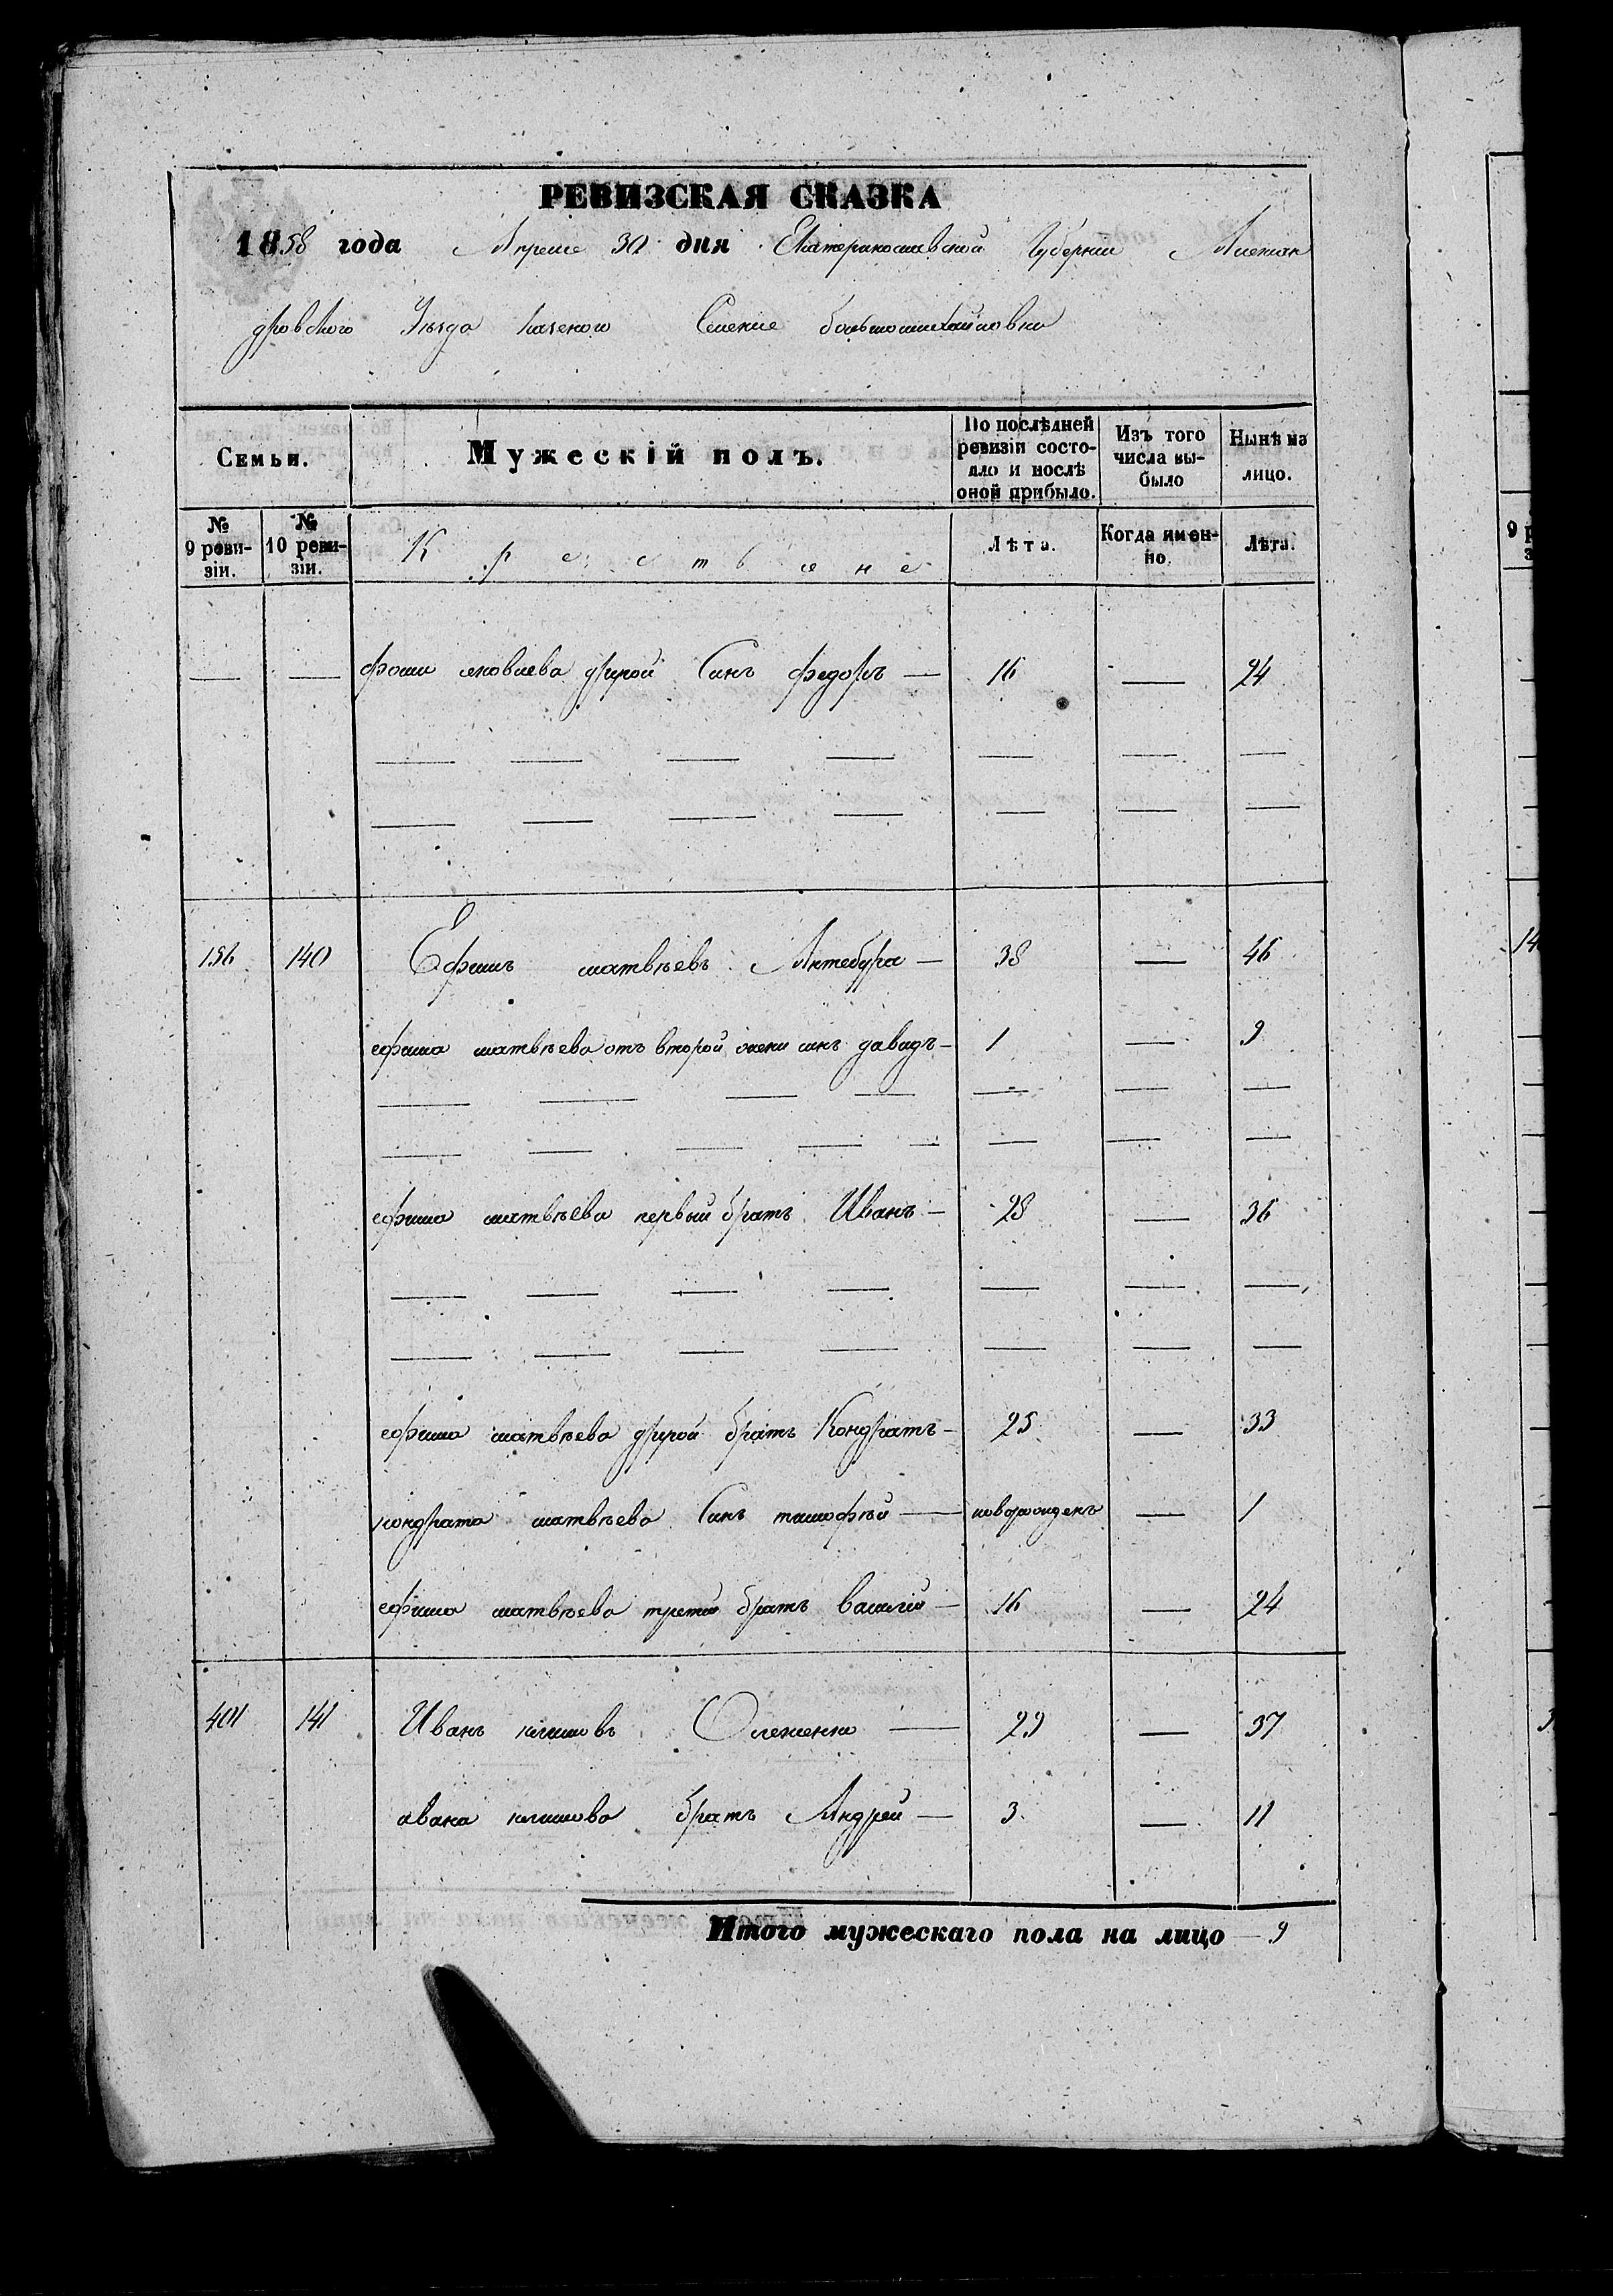 РЕВИЗСКАЯ СКАЗКА
1858 года Апреля 30 дня Екатеринославской Губернии Алексан
дровского Уезда казеного Селение большомихайловки
Семьи. Мужескій полъ. По послѣдней ревизіи состояло и послѣ оной прибыло. Изъ того числа выбыло Нынѣ на лицо.
№ 9 ревизіи. № 10 ревизіи. Крестьяне Лѣта. Когда именно. Лѣта.
— — фомы яковлева другой Синъ федоръ — 16 — 24
156 140 Ефимъ матвѣевъ — 38 — 46
ефима матвѣева отъ второй жени синъ давидъ — 1 — 9
ефима матвѣева первый братъ Иванъ — 28 — 36
ефима матвѣева другой братъ Кондратъ — 25 — 33
кондрата матвѣева Синъ тимофѣй — новорожденъ — 1
ефима матвѣева третий братъ василий — 16 — 24
401 141 Иванъ климовъ — 29 — 37
ивана климова братъ Андрей — 3 — 11
Итого мужескаго пола на лицо — 9